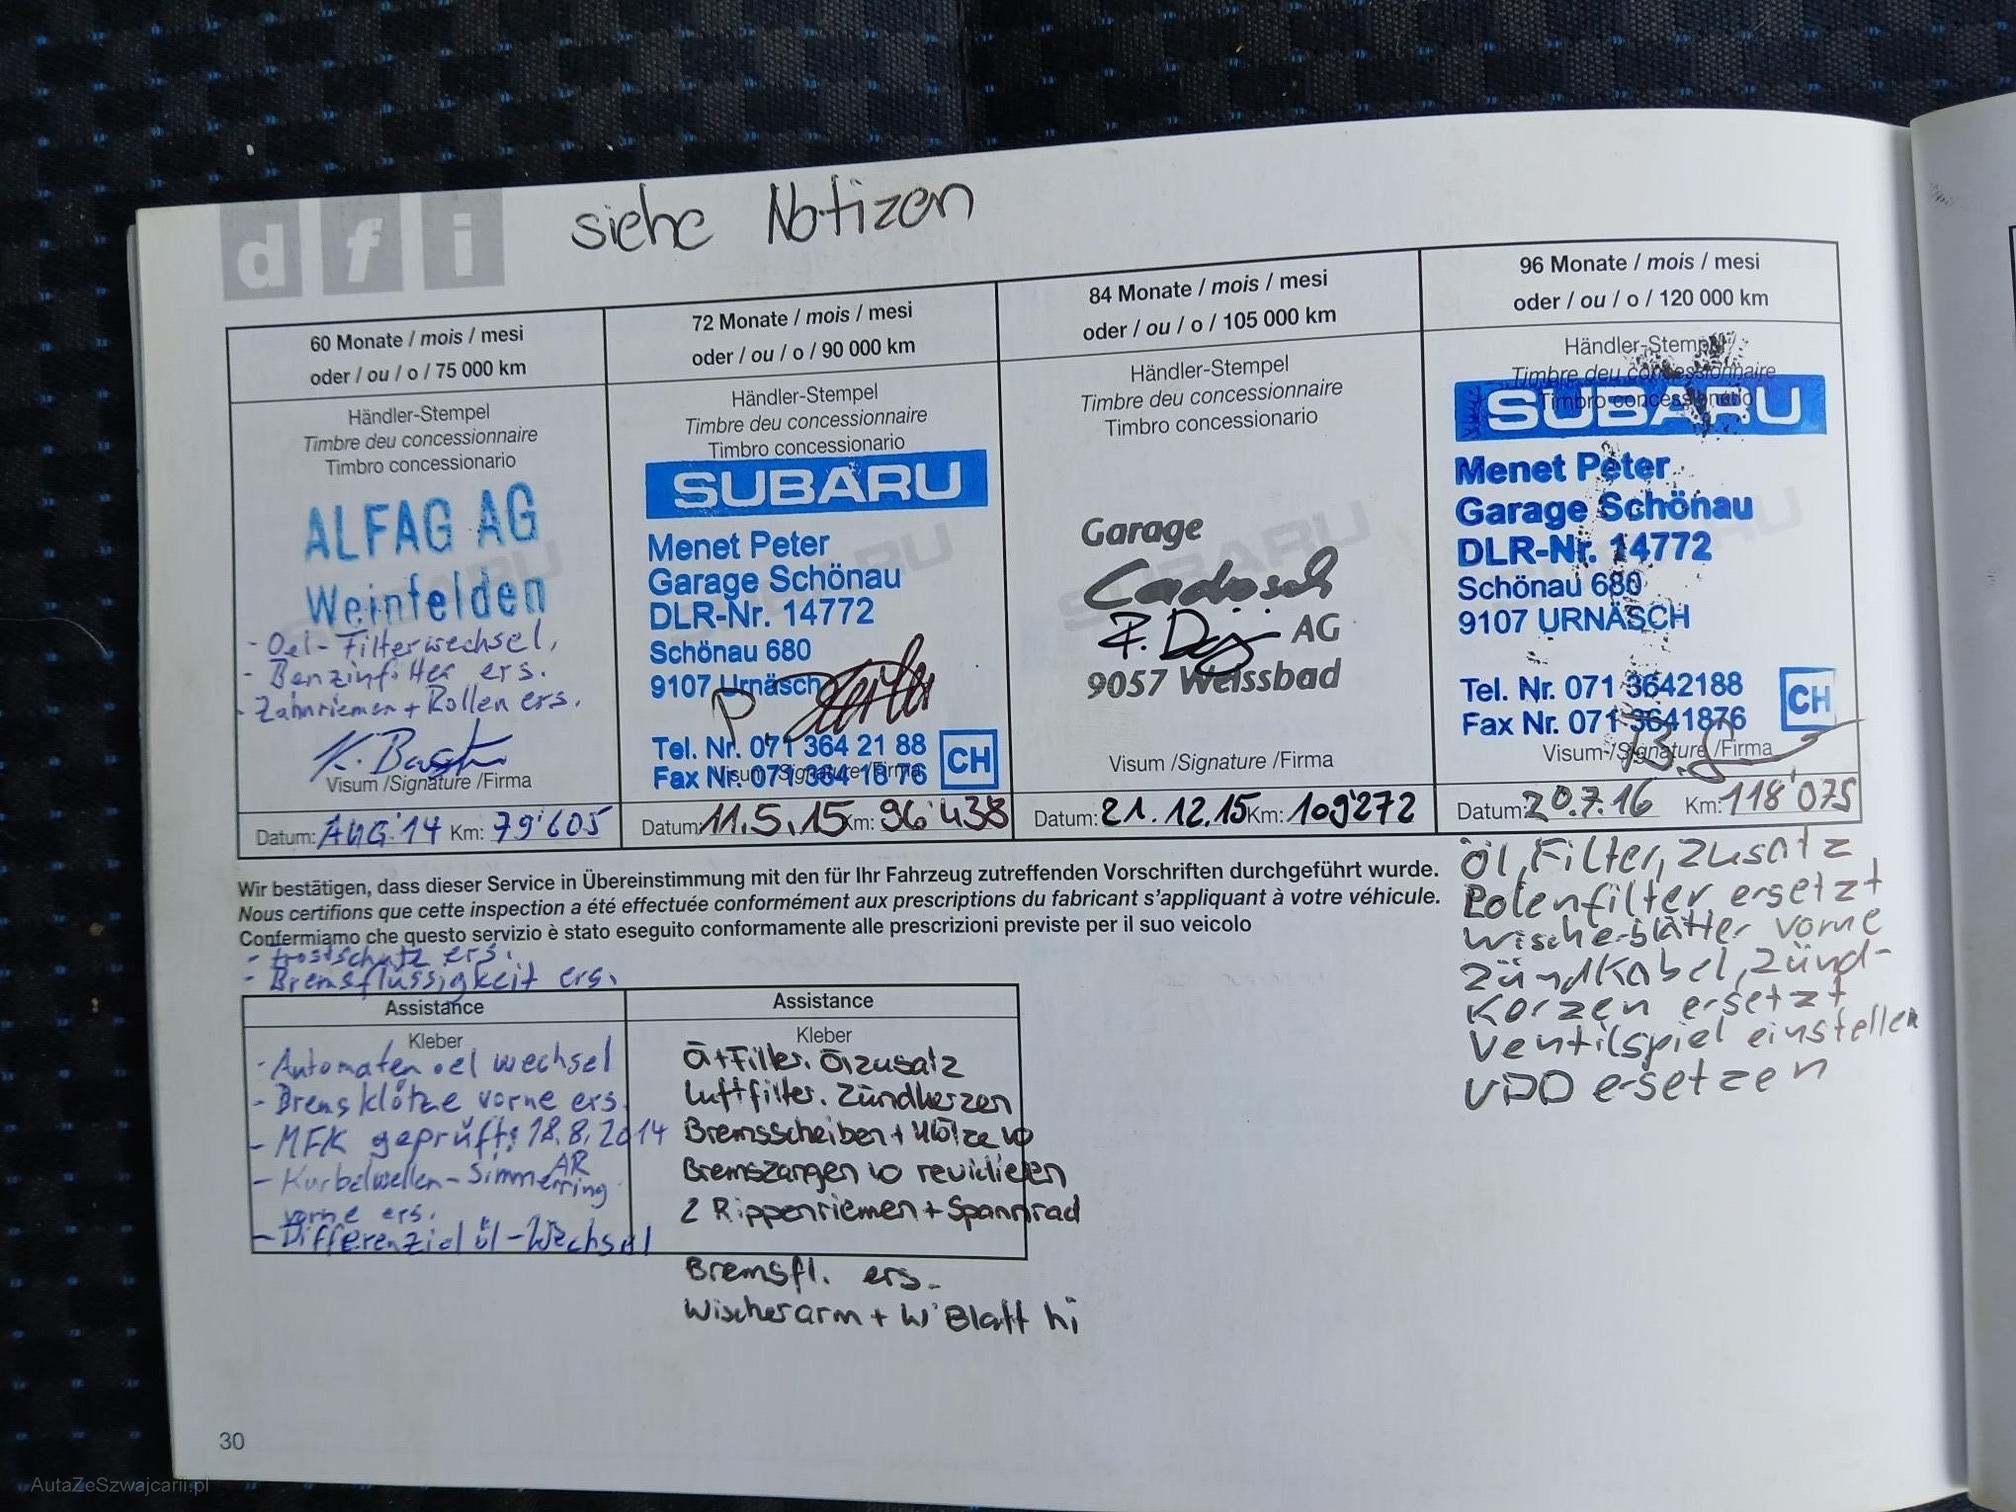 dfi
siehe Notizen
60 Monate / mois / mesi
oder / ou / o / 75 000 km
Händler-Stempel
Timbre deu concessionnaire
Timbro concessionario
ALFAG AG
Weinfelden
- Oel-Filterwechsel,
- Benzinfilter ers.
- Zahnriemen + Rollen ers.
Visum /Signature /Firma
Datum: AUG '14 Km: 79'605
72 Monate / mois / mesi
oder / ou / o / 90 000 km
Händler-Stempel
Timbre deu concessionnaire
Timbro concessionario
SUBARU
Menet Peter
Garage Schönau
DLR-Nr. 14772
Schönau 680
9107 Urnäsch
Tel. Nr. 071 364 21 88
Fax Nr. 071 364 18 76
CH
Visum /Signature /Firma
Datum: 11.5.15 Km: 96'438
84 Monate / mois / mesi
oder / ou / o / 105 000 km
Händler-Stempel
Timbre deu concessionnaire
Timbro concessionario
Garage
Cadosch
AG
9057 Weissbad
Visum /Signature /Firma
Datum: 21.12.15 Km: 109'272
96 Monate / mois / mesi
oder / ou / o / 120 000 km
Händler-Stempel
Timbre deu concessionnaire
Timbro concessionario
SUBARU
Menet Peter
Garage Schönau
DLR-Nr. 14772
Schönau 680
9107 URNÄSCH
Tel. Nr. 071 3642188
Fax Nr. 071 3641876
CH
Visum /Signature /Firma
Datum: 20.7.16 Km: 118'075
Wir bestätigen, dass dieser Service in Übereinstimmung mit den für Ihr Fahrzeug zutreffenden Vorschriften durchgeführt wurde.
Nous certifions que cette inspection a été effectuée conformément aux prescriptions du fabricant s'appliquant à votre véhicule.
Confermiamo che questo servizio è stato eseguito conformamente alle prescrizioni previste per il suo veicolo
- Frostschutz ers.
- Bremsflüssigkeit ers.
Assistance
Kleber
- Automaten oel wechsel
- Bremsklötze vorne ers.
- MFK geprüft: 18.8.2014
- Kurbelwellen-Simmerring
vorne ers.
- Differenzial öl-Wechsel
Assistance
Kleber
Öl+Filter. Ölzusatz
Luftfilter. Zündkerzen
Bremsscheiben + Klötze vo
Bremszangen vo revidieren
2 Rippenriemen + Spannrad
Bremsfl. ers.
Wischerarm + W'Blatt hi
Öl, Filter, Zusatz
Polenfilter ersetzt
Wischerblätter vorne
Zündkabel, Zünd-
kerzen ersetzt
Ventilspiel einstellen
VDD ersetzen
30
AutaZeSzwajcarii.pl